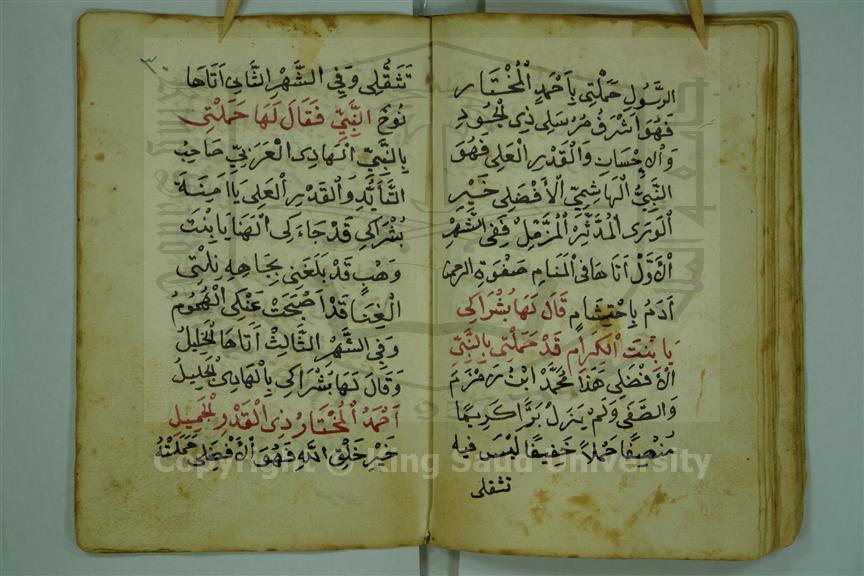 الرَّسُولِ حَمَلْتِي بِأَحْمَدِ الْمُخْتَار
فَهُوَ أَشْرَفُ مُرْسَلِي ذِي الْجُودِ
وَالْإِحْسَانِ وَالْقَدْرِ الْعَلِي فَهُوَ
النَّبِيُّ الْهَاشِمِيّ الْأَفْضَلِي خَيْرِ
الْوَرَى الْمُدَّثِّرْ الْمُزَّمِّلْ فَفِي الشَّهْرِ
الْأَوَّلْ أَتَاهَا فِي الْمَنَامِ صَفْوَةِ الرحمن
آدَمُ بِاِحْتِشَامٍ قَالَ لَهَا بُشْرَاكِي
يَا بِنْتَ الْكِرَامِ قَدْ حَمَلْتِي بِالنَّبِيِّ
الْأَفْضَلِي هَذَا مُحَمَّدْ ابْنُ زَمْزَمْ
وَالصَّفَى وَلَمْ يَزَلْ بَرًّا كَرِيمًا
مُنْصِفًا حَمْلاً خَفِيفًا لَيْسَ فِيه
تثقلى
٣٠
تَثَقُّلِي وَفِي الشَّهْرِ الثَّانِي أَتَاهَا
نُوحُ النَّبِيِّ فَقَالَ لَهَا حَمَلْتِي
بِالنَّبِيِّ الْهَادِي الْعَرَبِيِّ صَاحِبْ
التَّأْيِيدِ وَالْقَدْرِ الْعَلِي يَا آمِنَةَ
بُشْرَاكِي قَدْ جَاءَكِي الْهَنَا يَا بِنْتَ
وَهْبٍ قَدْ بَلَغَنِي بِجَاهِهِ نِلْتِي
الْغِنَا قَدْ أَصْبَحَتْ عَنْكِي الْهُمُومُ
وَفِي الشَّهْرِ الثَّالِثْ أَتَاهَا الْخَلِيلُ
وَقَالَ لَهَا بُشْرَاكِي بِالْهَادِي الْجَلِيلُ
أَحْمَدُ الْمُخْتَارْ ذِي الْقَدْرِ الْجَمِيلِ
خَيْرِ خَلْقِ اللّٰهِ فَهُوَ الْأَفْضَلِي حَمَلَتْهُ
Copyright © King Saud University